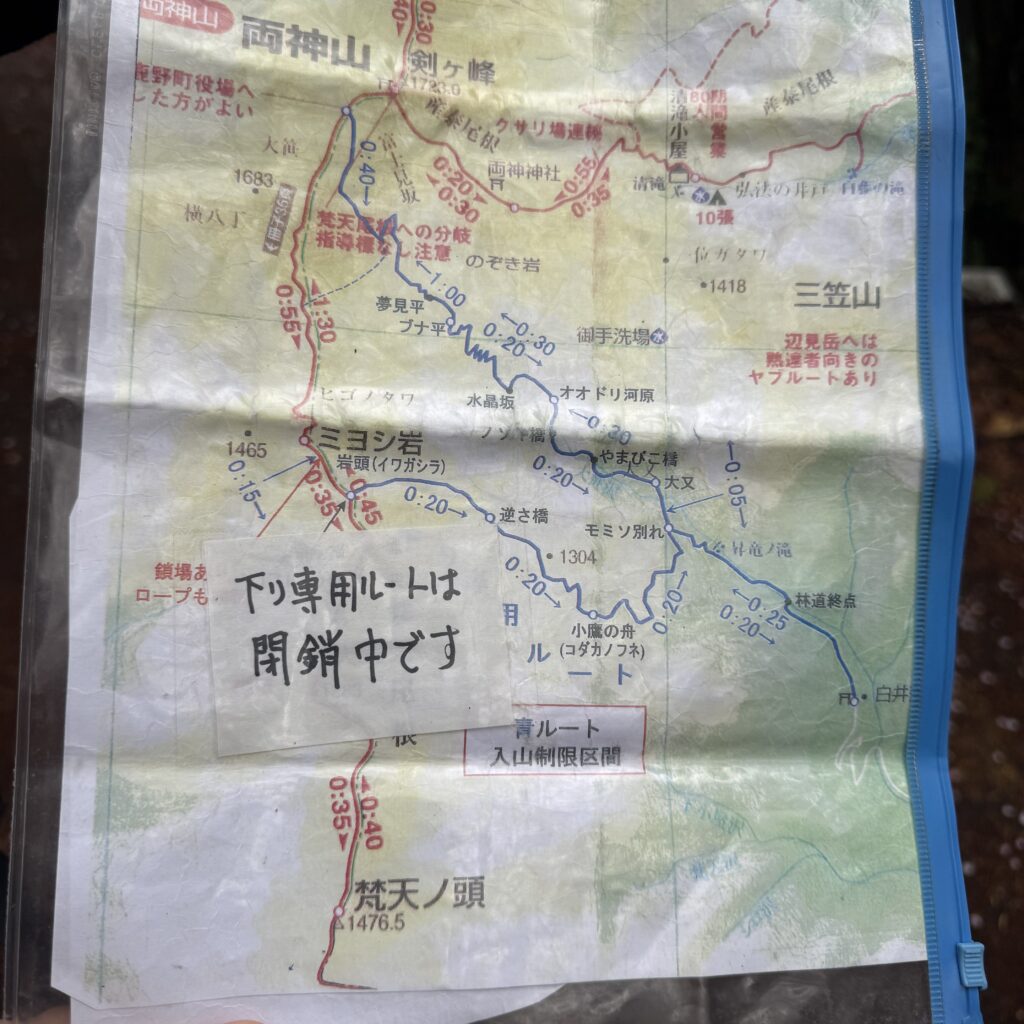 両神山
両神山
0:40
0:30
剣ヶ峰
1723.0
鹿野町役場へ
した方がよい
産泰尾根
クサリ場連続
清滝小屋
産泰尾根
大笹
0:40→
富士見坂
両神神社
0:20
0:30
0:55
0:35
清滝
弘法の井戸
白藤の滝
10張
1683
横八丁
梵天尾根への分岐
指導標なし注意
のぞき岩
位ガタワ
1418
三笠山
←1:00
0:55
1:30
夢見平
ブナ平
←0:30
0:20→
御手洗場
辺見岳へは
熟達者向きの
ヤブルートあり
ヒゴノタワ
水晶坂
オオドリ河原
←0:20
1465
ミヨシ岩
岩頭(イワガシラ)
ノゾキ橋
やまびこ橋
0:20→
大又
←0:05→
0:15→
0:35
0:45
0:20→
逆さ橋
モミソ別れ
昇竜ノ滝
1304
鎖場あ
ロープも
0:20→
0:20→
←0:25
0:20→
林道終点
下り専用ルートは
閉鎖中です
用
ル
ート
小鷹の舟
(コダカノフネ)
白井
青ルート
入山制限区間
根
0:35
0:40
梵天ノ頭
1476.5